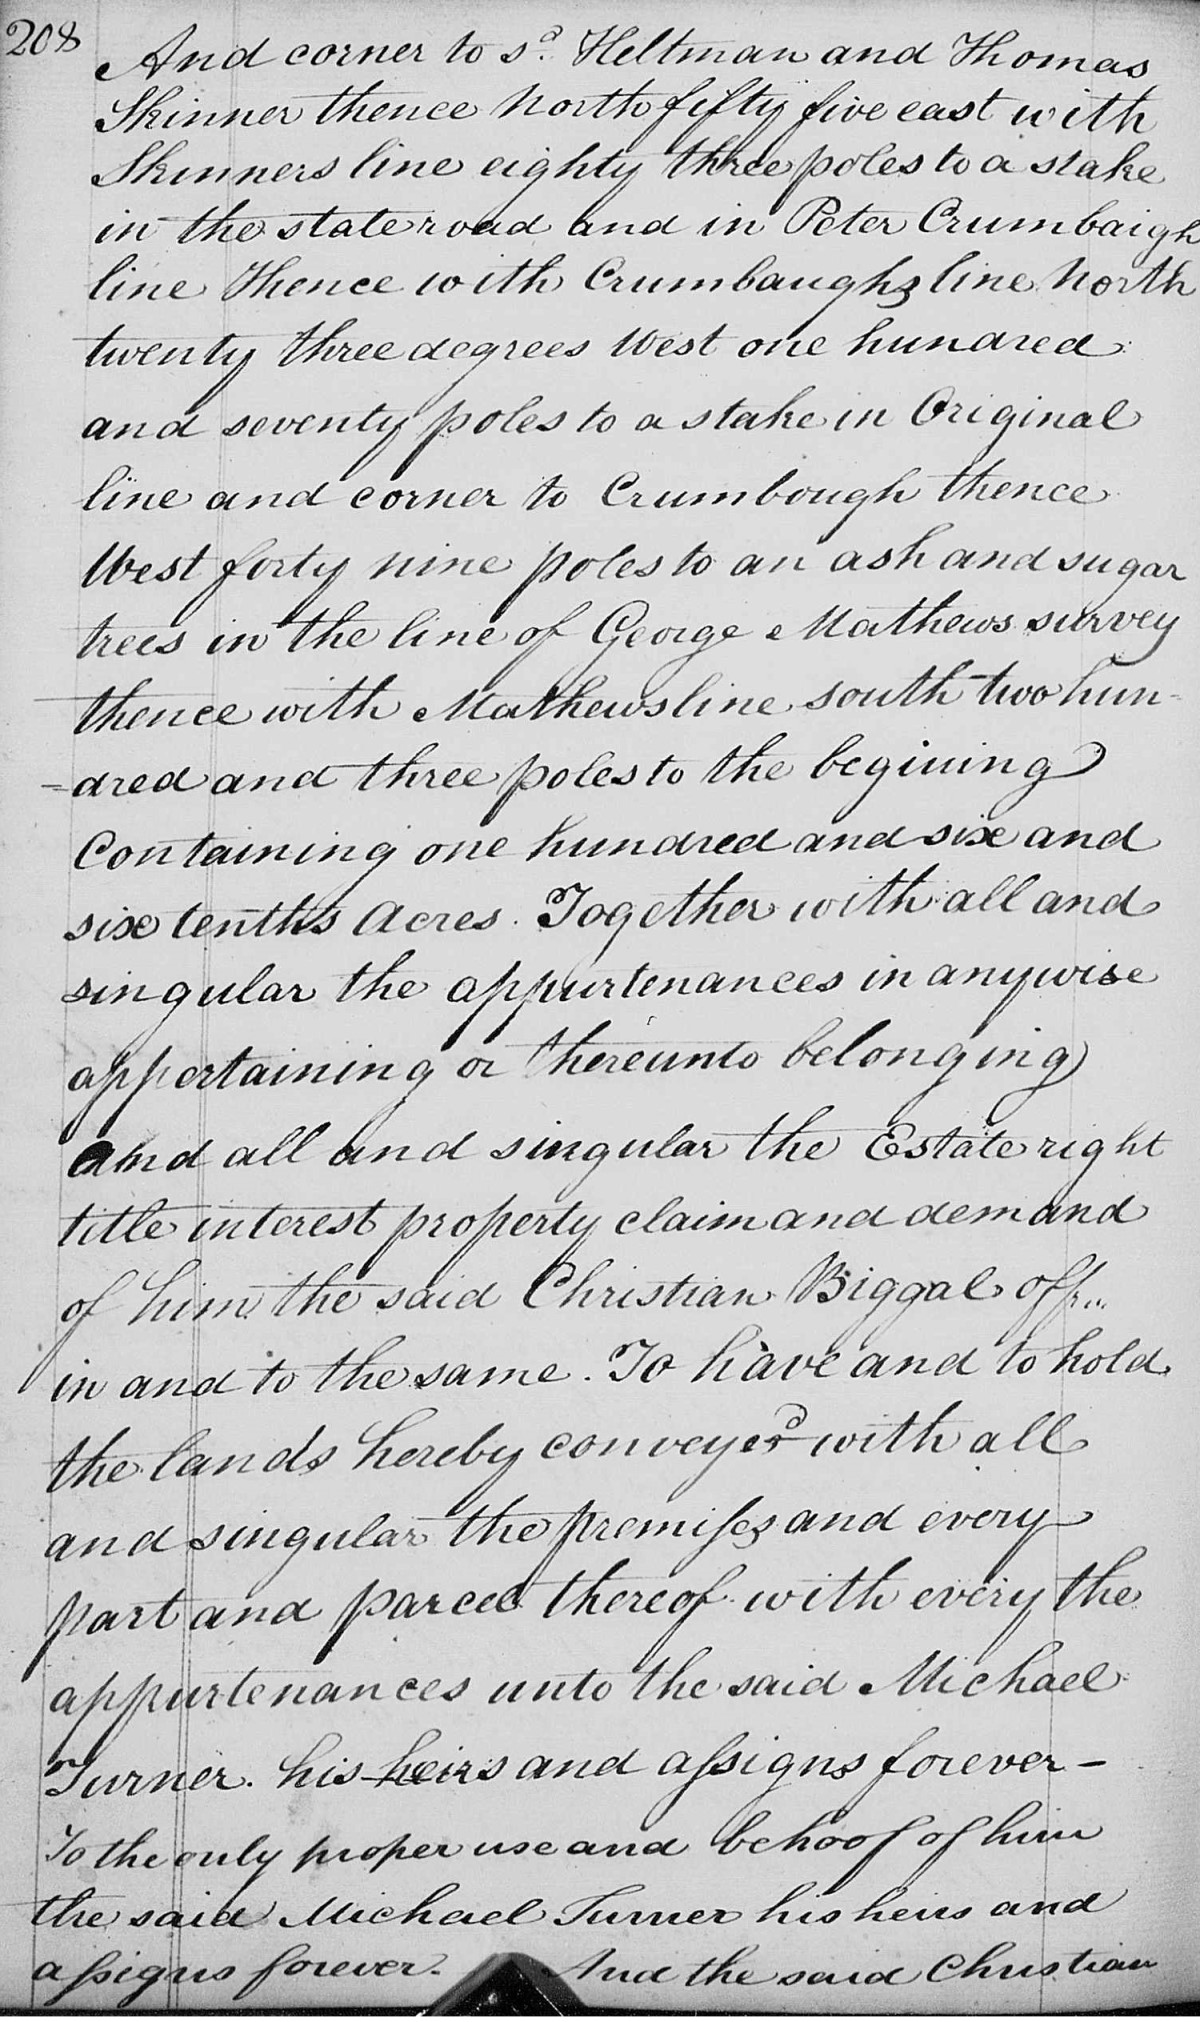 208
And corner to sd. Heltman and Thomas
Skinner thence North fifty five east with
Skinners line eighty three poles to a stake
in the state road and in Peter Crumbaigh
line Thence with Crumbaughs line North
twenty three degrees West one hundred
and seventy poles to a stake in Original
line and corner to Crumbough thence
West forty nine poles to an ash and sugar
trees in the line of George Mathews survey
thence with Mathews line south two hun-
-dred and three poles to the begining
Containing one hundred and six and
six tenths Acres. Together with all and
singular the appurtenances in anywise
appertaining or thereunto belonging
And all and singular the Estate right
title interest property claim and demand
of him the said Christian Biggal of
in and to the same. To have and to hold
the lands hereby conveyed with all
and singular the premises and every
part and parcel thereof with every the
appurtenances unto the said Michael
Turner. his heirs and assigns forever -
To the only proper use and behoof of him
the said Michael Turner his heirs and
assigns forever. And the said Christian